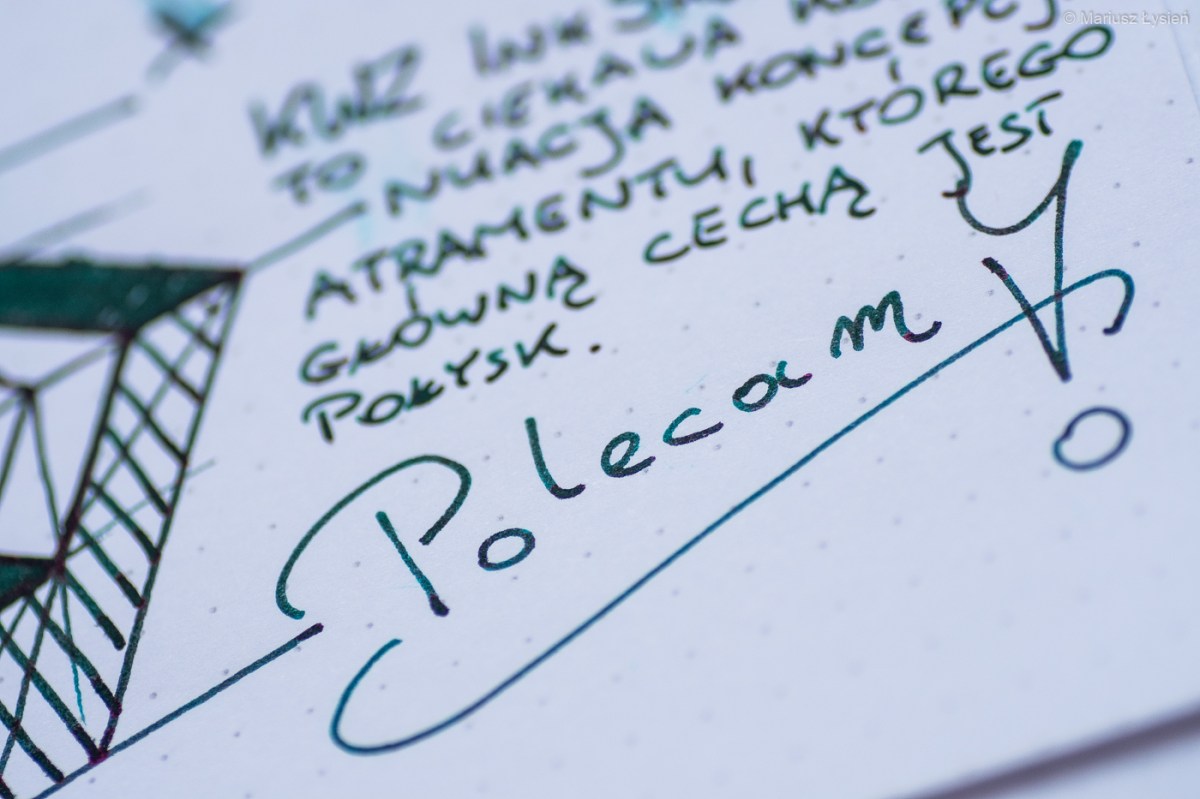 © Mariusz Łysień
INK
TO CIEKAWA
NUACJA KONCEPCJ
ATRAMENTU, KTÓREGO
GŁÓWNĄ CECHĄ JEST
POŁYSK.
Polecam!